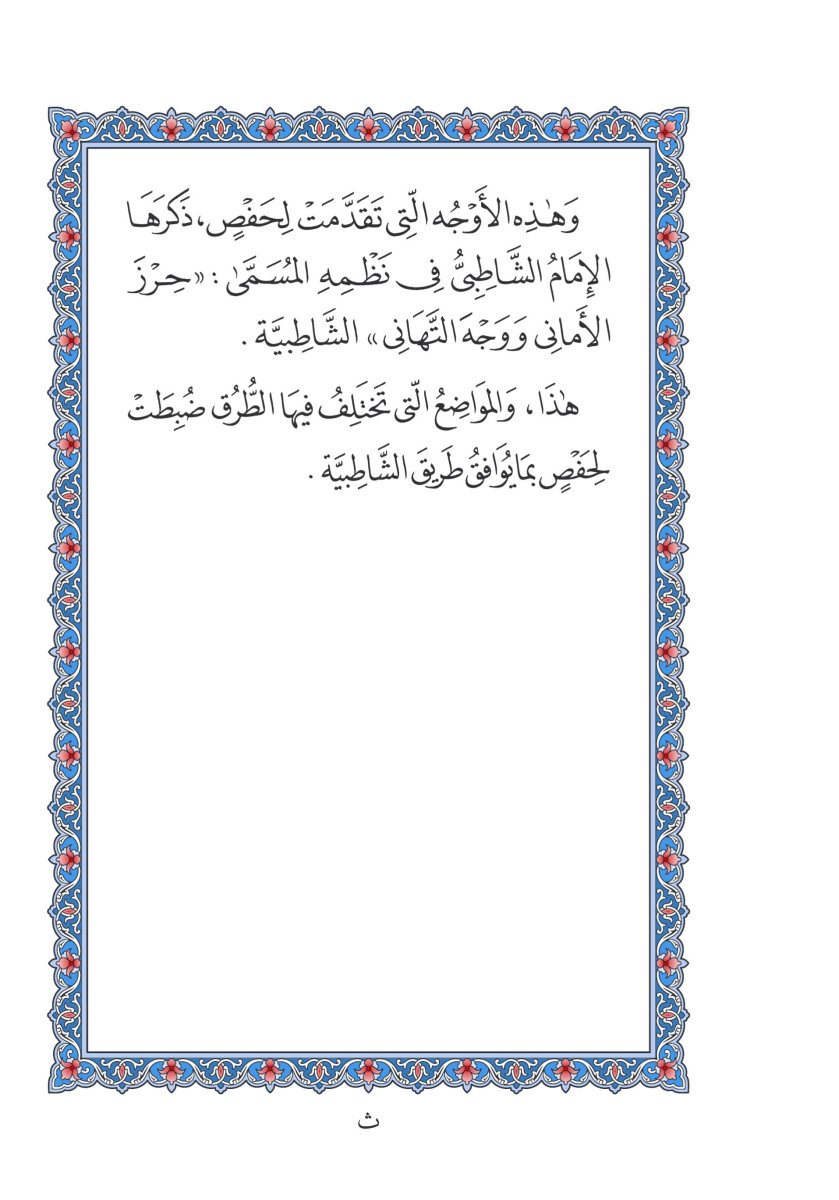 وَهَٰذِهِ الأَوْجُه الَّتِى تَقَدَّمَتْ لِحَفْصٍ، ذَكَرَهَا
الإِمَامُ الشَّاطِبِىُّ فِى نَظْمِهِ المُسَمَّىٰ : «حِرْزَ
الأَمانِى وَوَجْهَ التَّهَانِى» الشَّاطِبيَّة .
هٰذَا، وَالمَوَاضِعُ الَّتى تَخْتَلِفُ فِيهَا الطُّرُق ضُبِطَتْ
لِحَفْصٍ بمَا يُوَافقُ طَرِيقَ الشَّاطِبيَّة .
ث